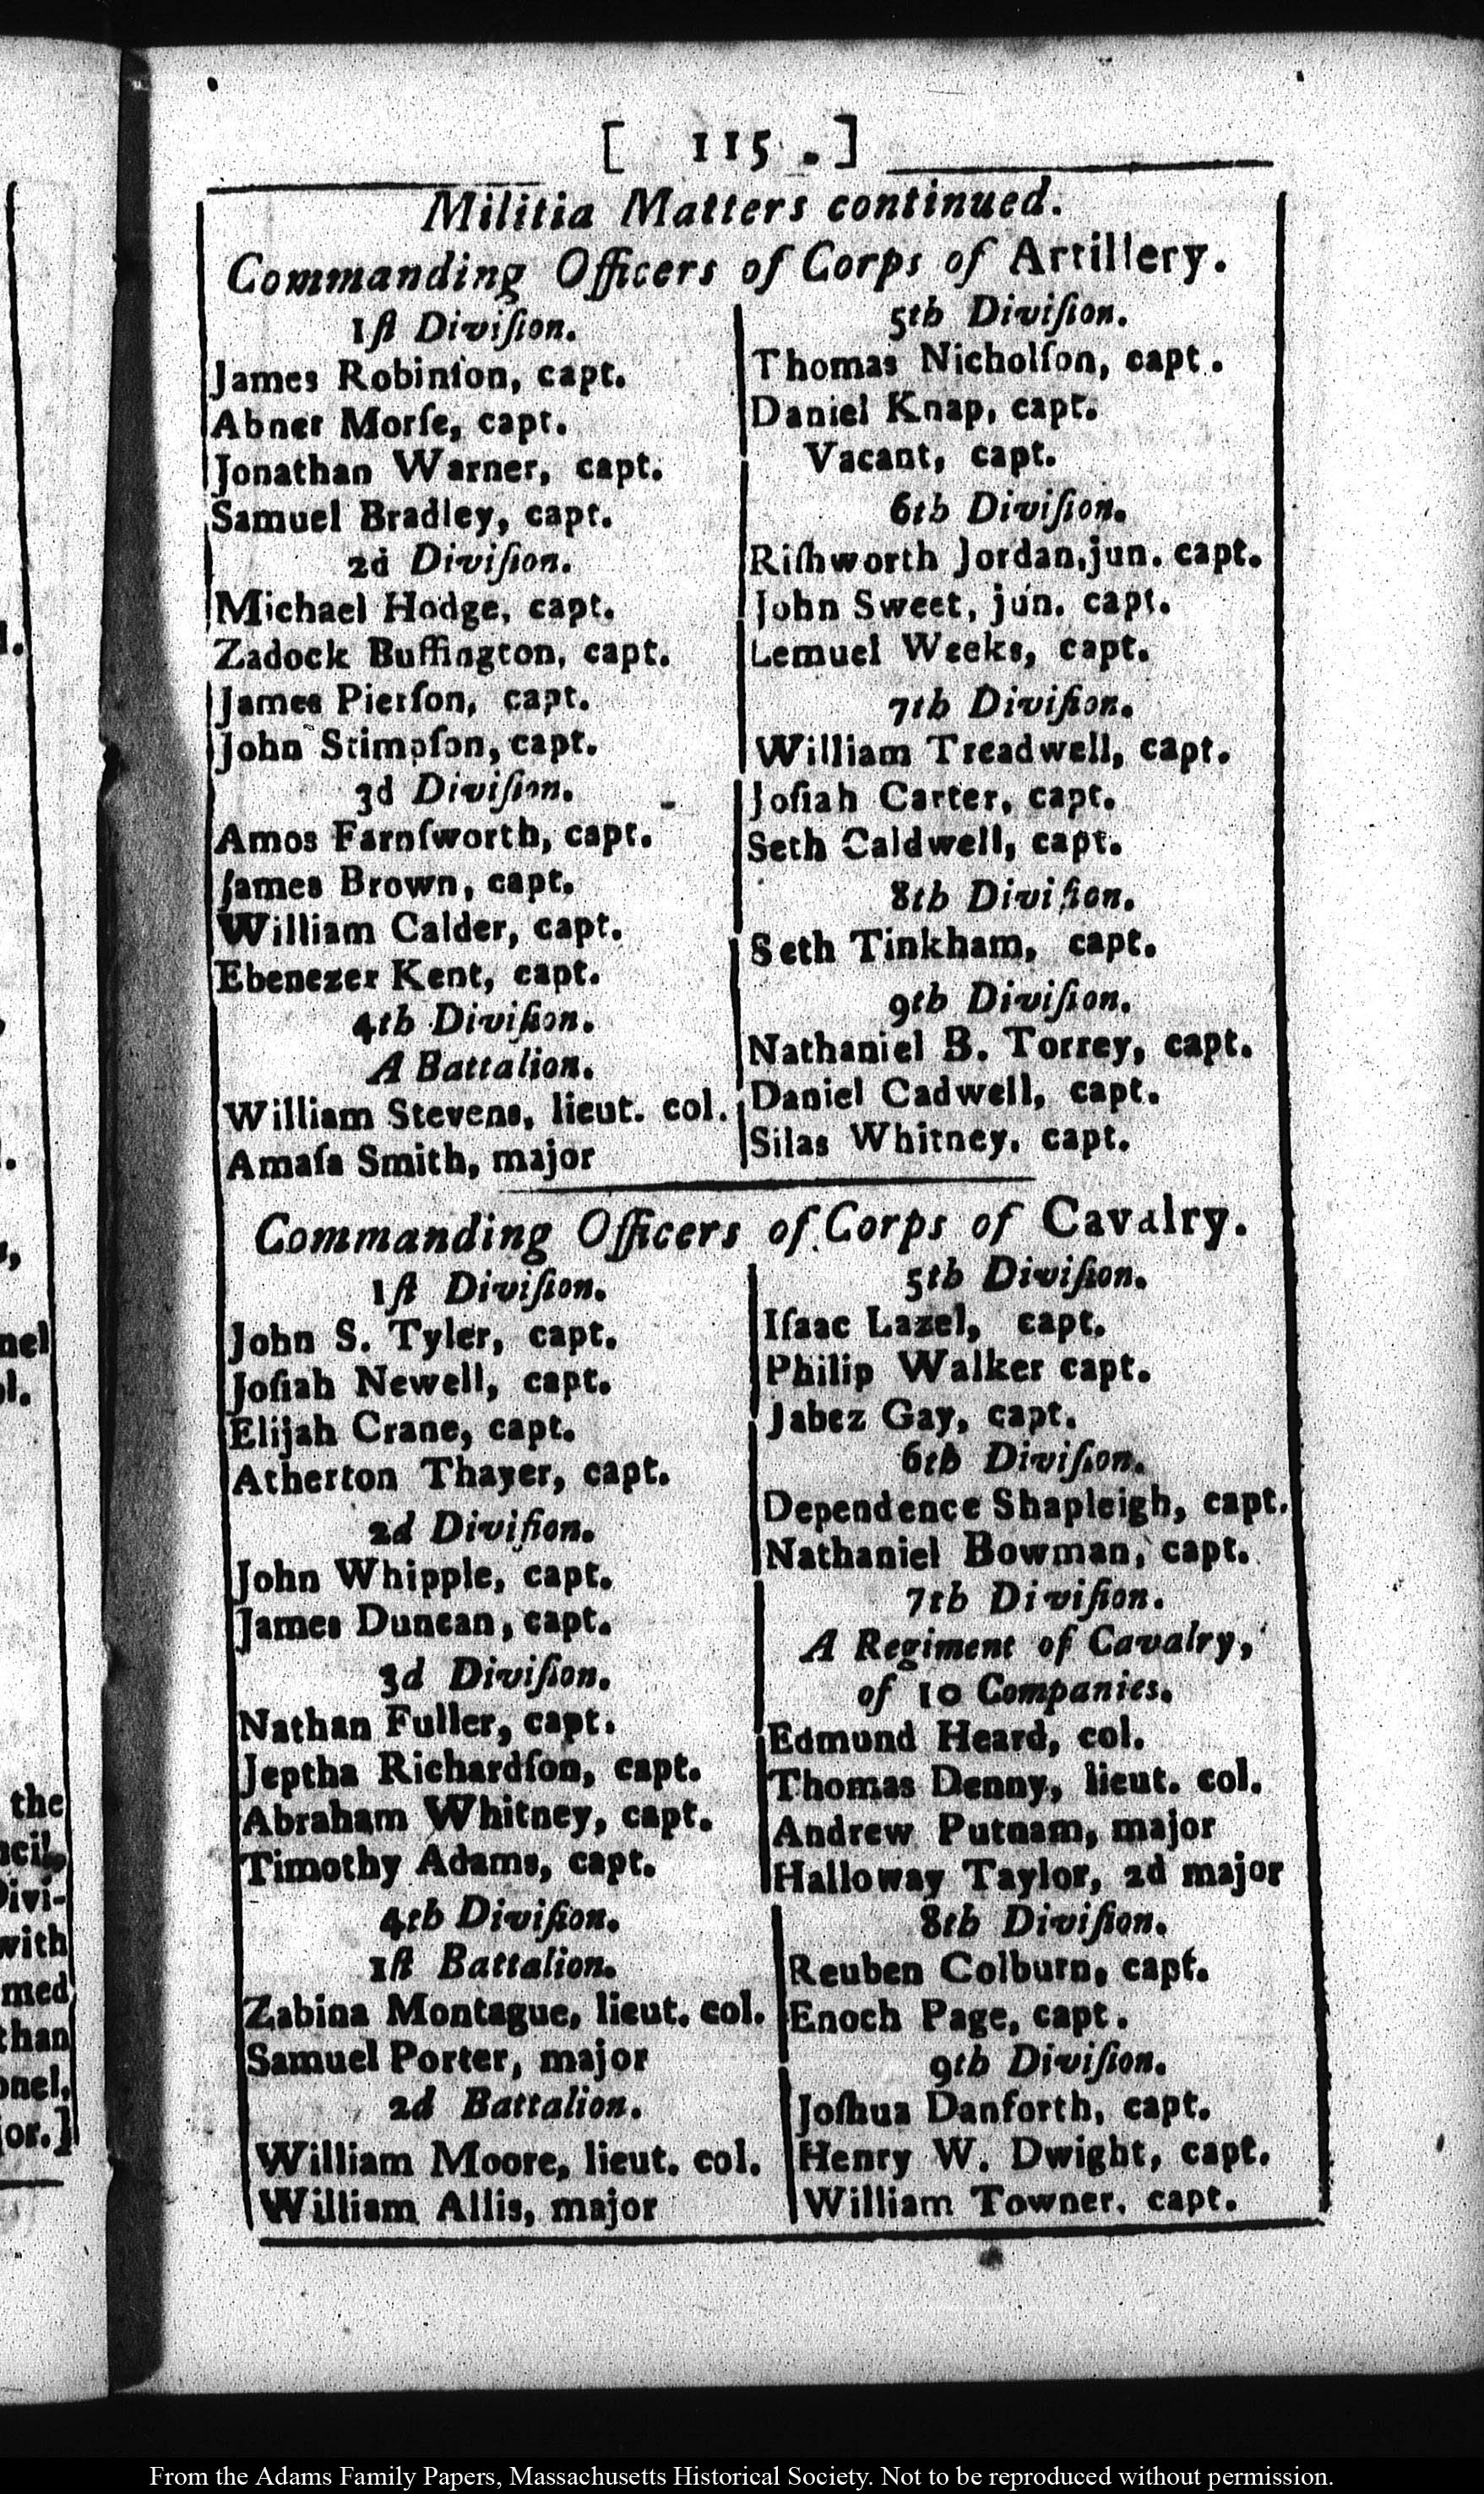 [ 115 . ]
Militia Matters continued.
Commanding Officers of Corps of Artillery.
1ſt Diviſion.
James Robinſon, capt.
Abner Morſe, capt.
Jonathan Warner, capt.
Samuel Bradley, capt.
2d Diviſion.
Michael Hodge, capt.
Zadock Buffington, capt.
James Pierſon, capt.
John Stimpſon, capt.
3d Diviſion.
Amos Farnſworth, capt.
James Brown, capt.
William Calder, capt.
Ebenezer Kent, capt.
4th Diviſion.
A Battalion.
William Stevens, lieut. col.
Amaſa Smith, major
5th Diviſion.
Thomas Nicholſon, capt.
Daniel Knap, capt.
Vacant, capt.
6th Diviſion.
Riſhworth Jordan, jun. capt.
John Sweet, jun. capt.
Lemuel Weeks, capt.
7th Diviſion.
William Treadwell, capt.
Joſiah Carter, capt.
Seth Caldwell, capt.
8th Diviſion.
Seth Tinkham, capt.
9th Diviſion.
Nathaniel B. Torrey, capt.
Daniel Cadwell, capt.
Silas Whitney, capt.
Commanding Officers of Corps of Cavalry.
1ſt Diviſion.
John S. Tyler, capt.
Joſiah Newell, capt.
Elijah Crane, capt.
Atherton Thayer, capt.
2d Diviſion.
John Whipple, capt.
James Duncan, capt.
3d Diviſion.
Nathan Fuller, capt.
Jeptha Richardſon, capt.
Abraham Whitney, capt.
Timothy Adams, capt.
4th Diviſion.
1ſt Battalion.
Zabina Montague, lieut. col.
Samuel Porter, major
2d Battalion.
William Moore, lieut. col.
William Allis, major
5th Diviſion.
Iſaac Lazel, capt.
Philip Walker capt.
Jabez Gay, capt.
6th Diviſion.
Dependence Shapleigh, capt.
Nathaniel Bowman, capt.
7th Diviſion.
A Regiment of Cavalry,
of 10 Companies.
Edmund Heard, col.
Thomas Denny, lieut. col.
Andrew Putnam, major
Halloway Taylor, 2d major
8th Diviſion.
Reuben Colburn, capt.
Enoch Page, capt.
9th Diviſion.
Joſhua Danforth, capt.
Henry W. Dwight, capt.
William Towner, capt.
the
Divi-
with
than
From the Adams Family Papers, Massachusetts Historical Society. Not to be reproduced without permission.